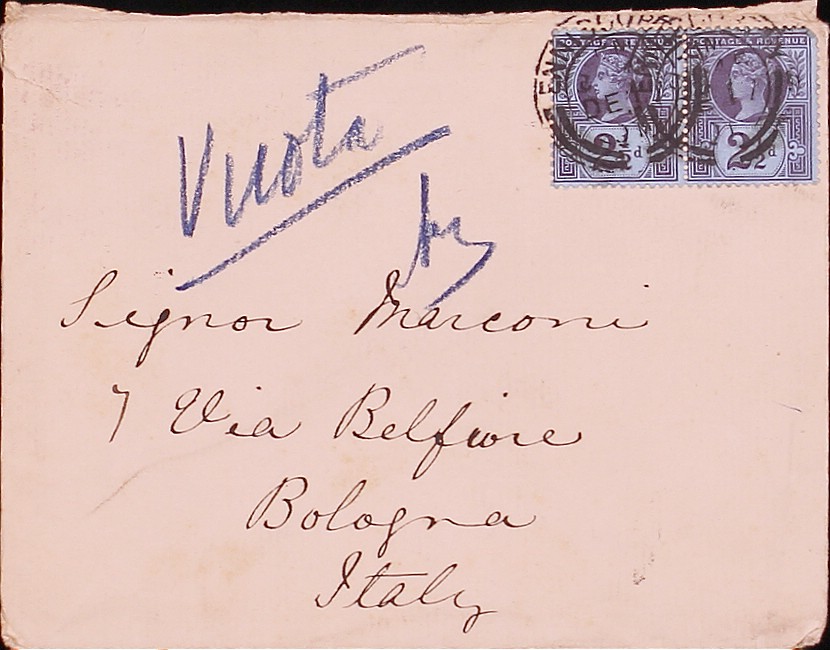 POSTAGE & REVENUE
POSTAGE & REVENUE
DE
2½d
2½d
Vuota
Signor Marconi
7 Via Belfiore
Bologna
Italy